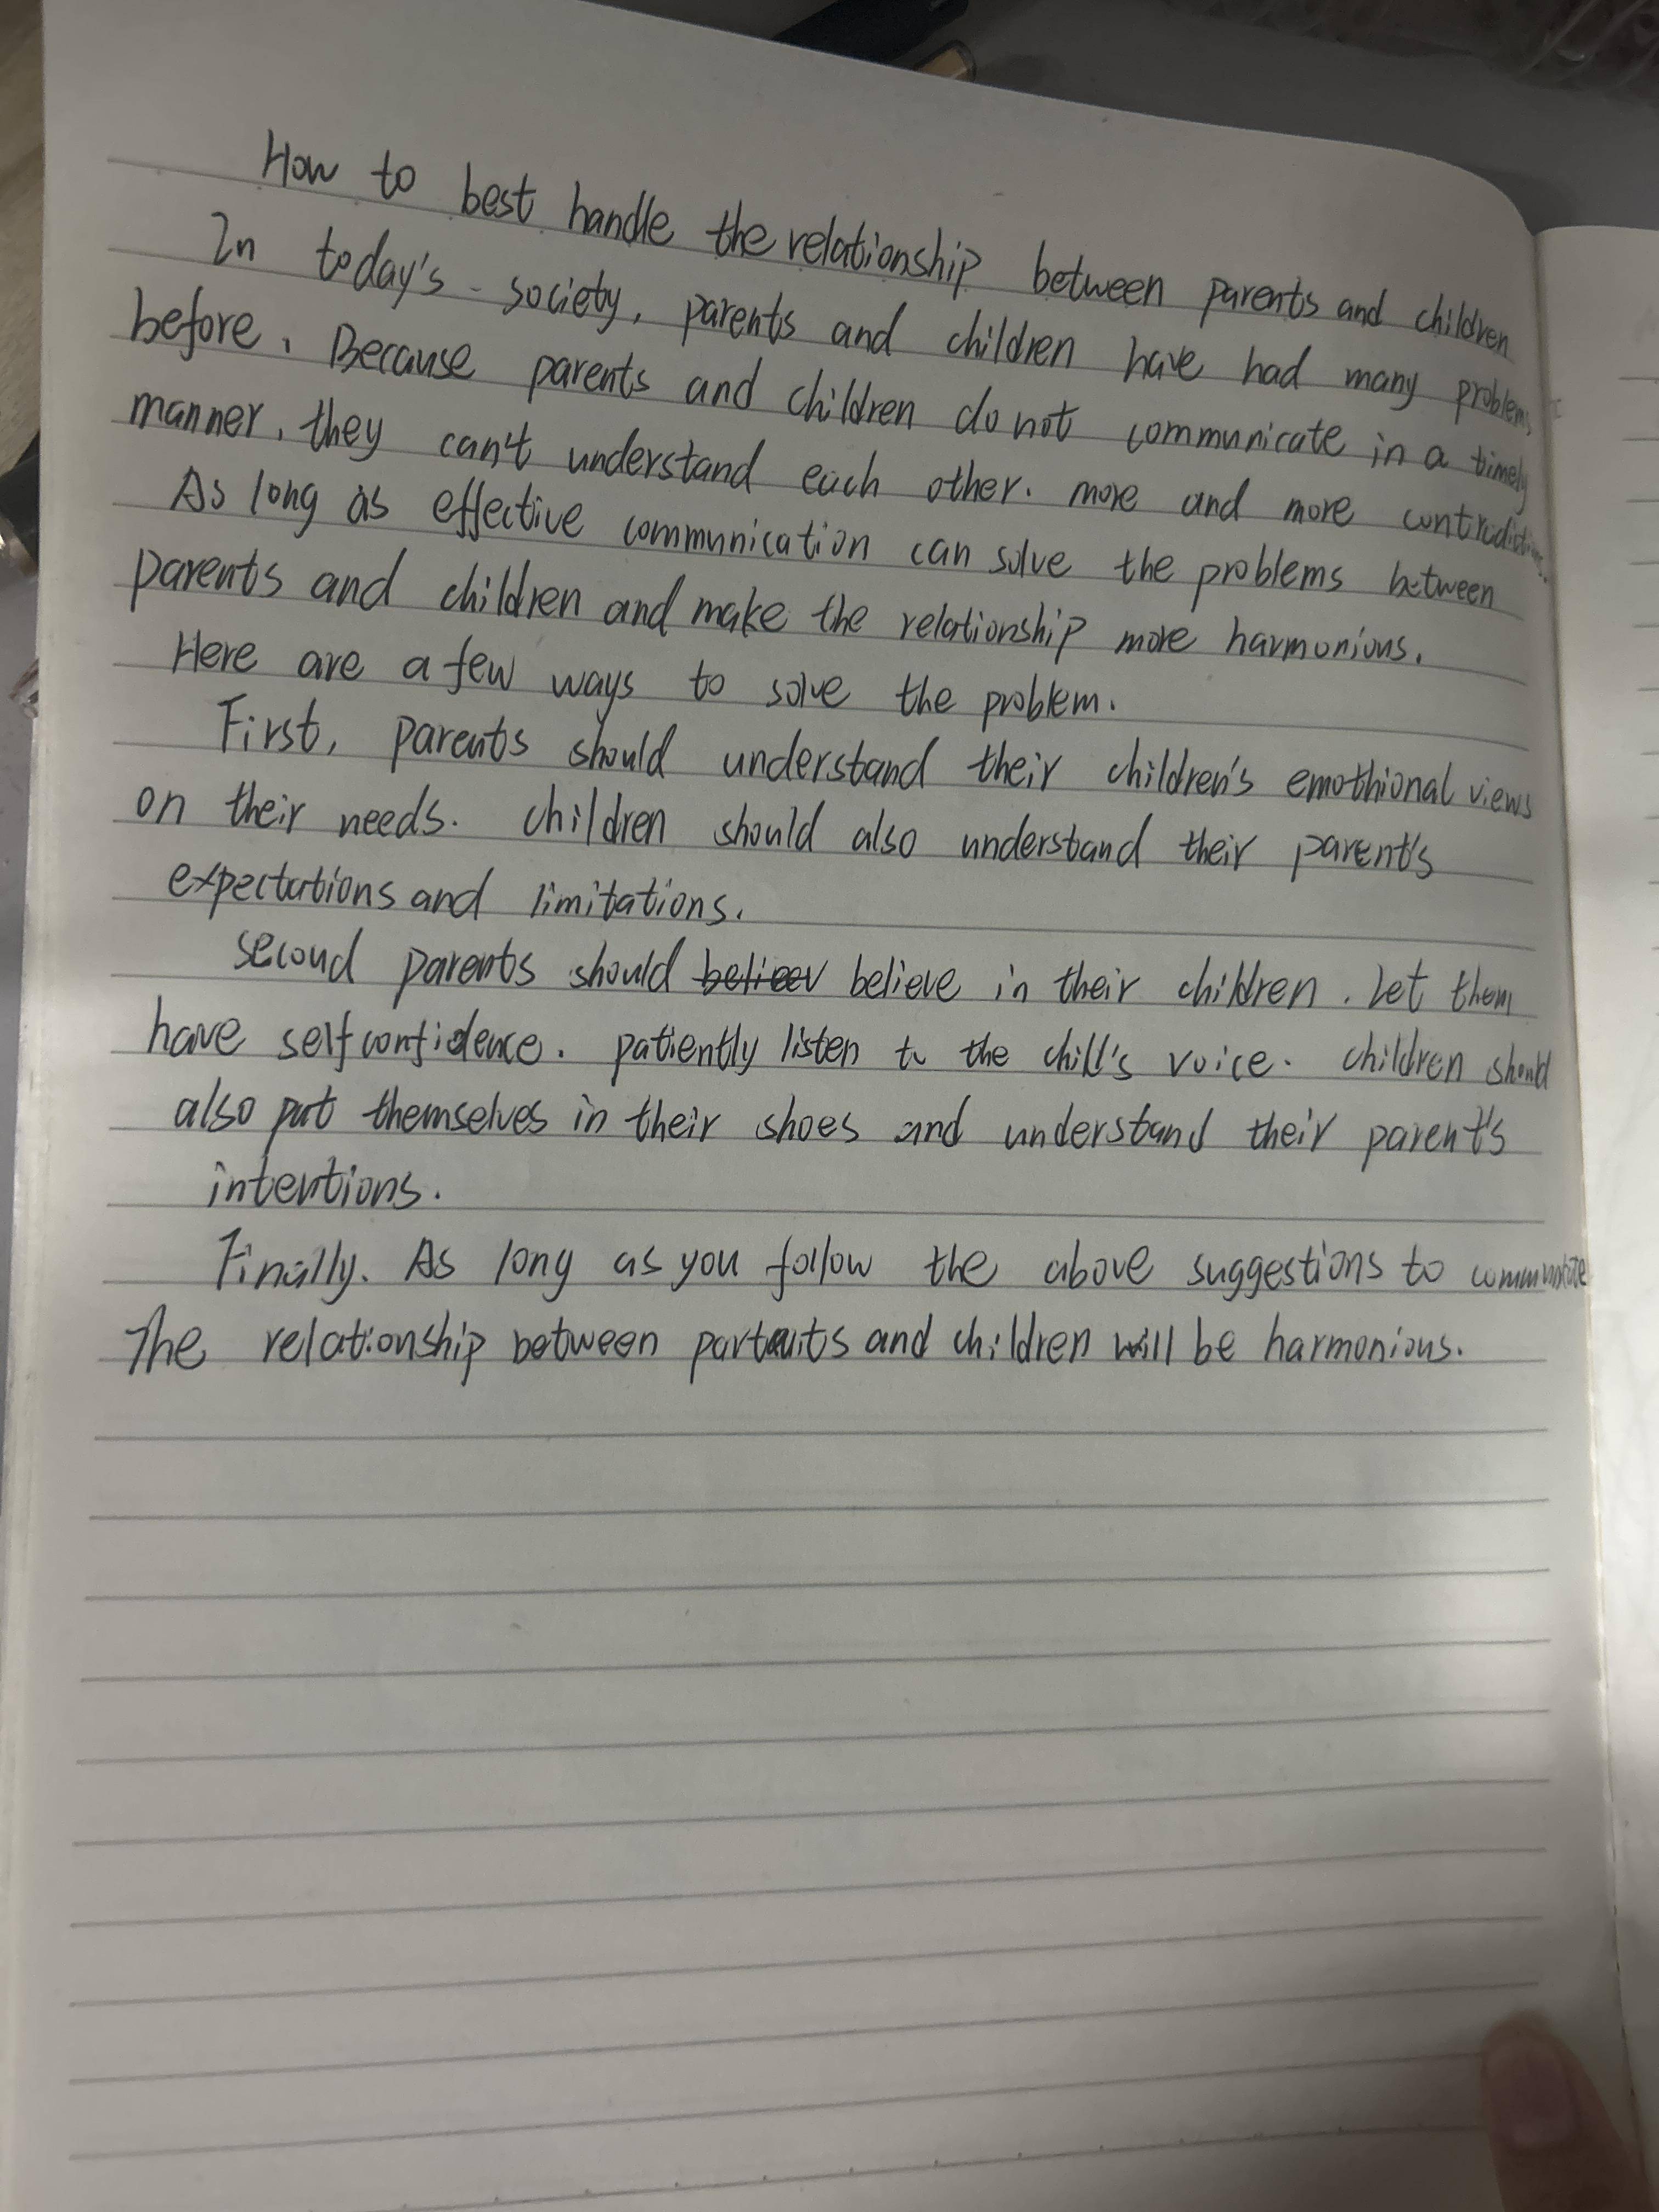 How to best handle the relationship between parents and children
In today's society, parents and children have had many problems
before. Because parents and children do not communicate in a timely
manner, they can't understand each other. more and more
As long as effective communication can solve the problems between
parents and children and make the relationship more harmonious.
Here are a few ways to solve the problem.
First, parents should understand their children's emothional views
on their needs. children should also understand their parent's
expectations and limitations.
second parents should believe in their children. Let them
have selfconfidence. patiently listen to the chill's voice. children should
also put themselves in their shoes and understand their parent's
intentions.
Finally. As long as you follow the above suggestions to
The relationship between and children will be harmonious.